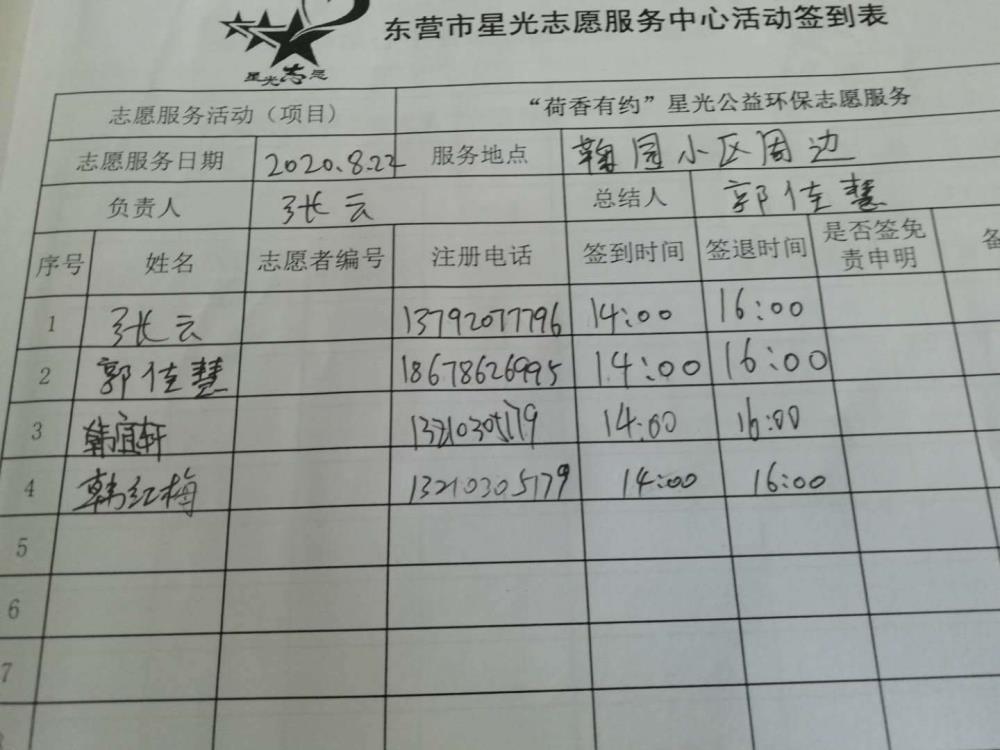 东营市星光志愿服务中心活动签到表
星光志愿
志愿服务活动（项目） “荷香有约”星光公益环保志愿服务
志愿服务日期 2020.8.22 服务地点 鞠园小区周边
负责人 张云 总结人 郭佳慧
序号 姓名 志愿者编号 注册电话 签到时间 签退时间 是否签免责申明 备
1 张云 13792077796 14:00 16:00
2 郭佳慧 18678626995 14:00 16:00
3 韩宜轩 13210305179 14:00 16:00
4 韩红梅 13210305179 14:00 16:00
5
6
7